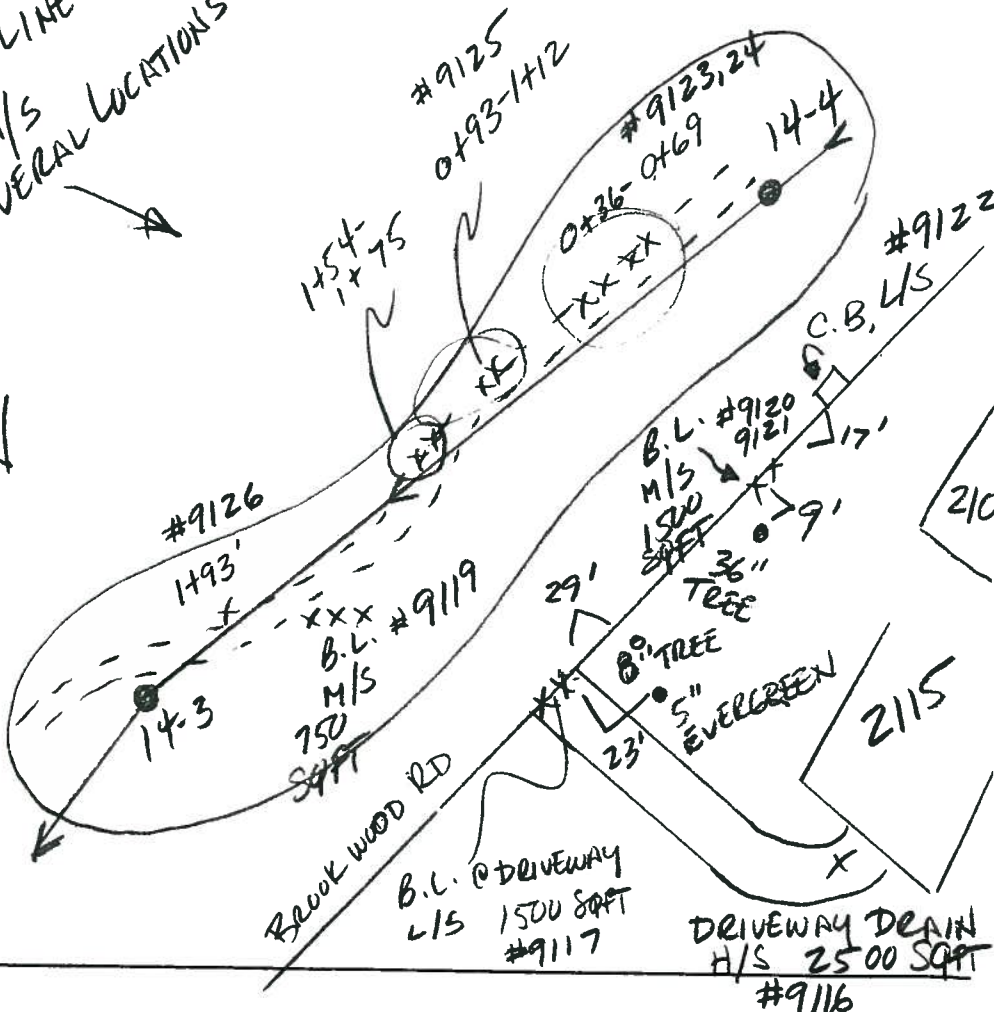 LINE
/S
VERAL LOCATIONS
#9125
0+93-1+12
#9123,24
0+36-0+69
14-4
1+54-
1+75
#9122
C.B, L/S
17'
B.L. #9120
9121
M/S
1500
SQFT
9'
36"
TREE
210
#9126
1+93'
XXX
B.L. #9119
M/S
750
SQFT
14-3
29'
8" TREE
5"
EVERGREEN
23'
2115
BROOKWOOD RD
B.L. @ DRIVEWAY
L/S 1500 SQFT
#9117
DRIVEWAY DRAIN
H/S 2500 SQFT
#9116